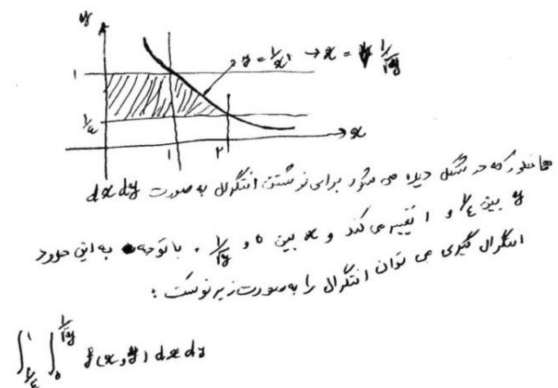 y
y = 1/x² → x = 1/√y
۱
۱/۴
۱ ۲
x
همانطور که در شکل دیده می شود برای نوشتن انتگرال به صورت dx dy
y بین ۱/۴ و ۱ تغییر می کند و x بین ۰ و 1/√y . با توجه به این حدود
انتگرال گیری می توان انتگرال را به صورت زیر نوشت :
∫_{۱/۴}^{۱} ∫_{۰}^{1/√y} f(x,y) dx dy